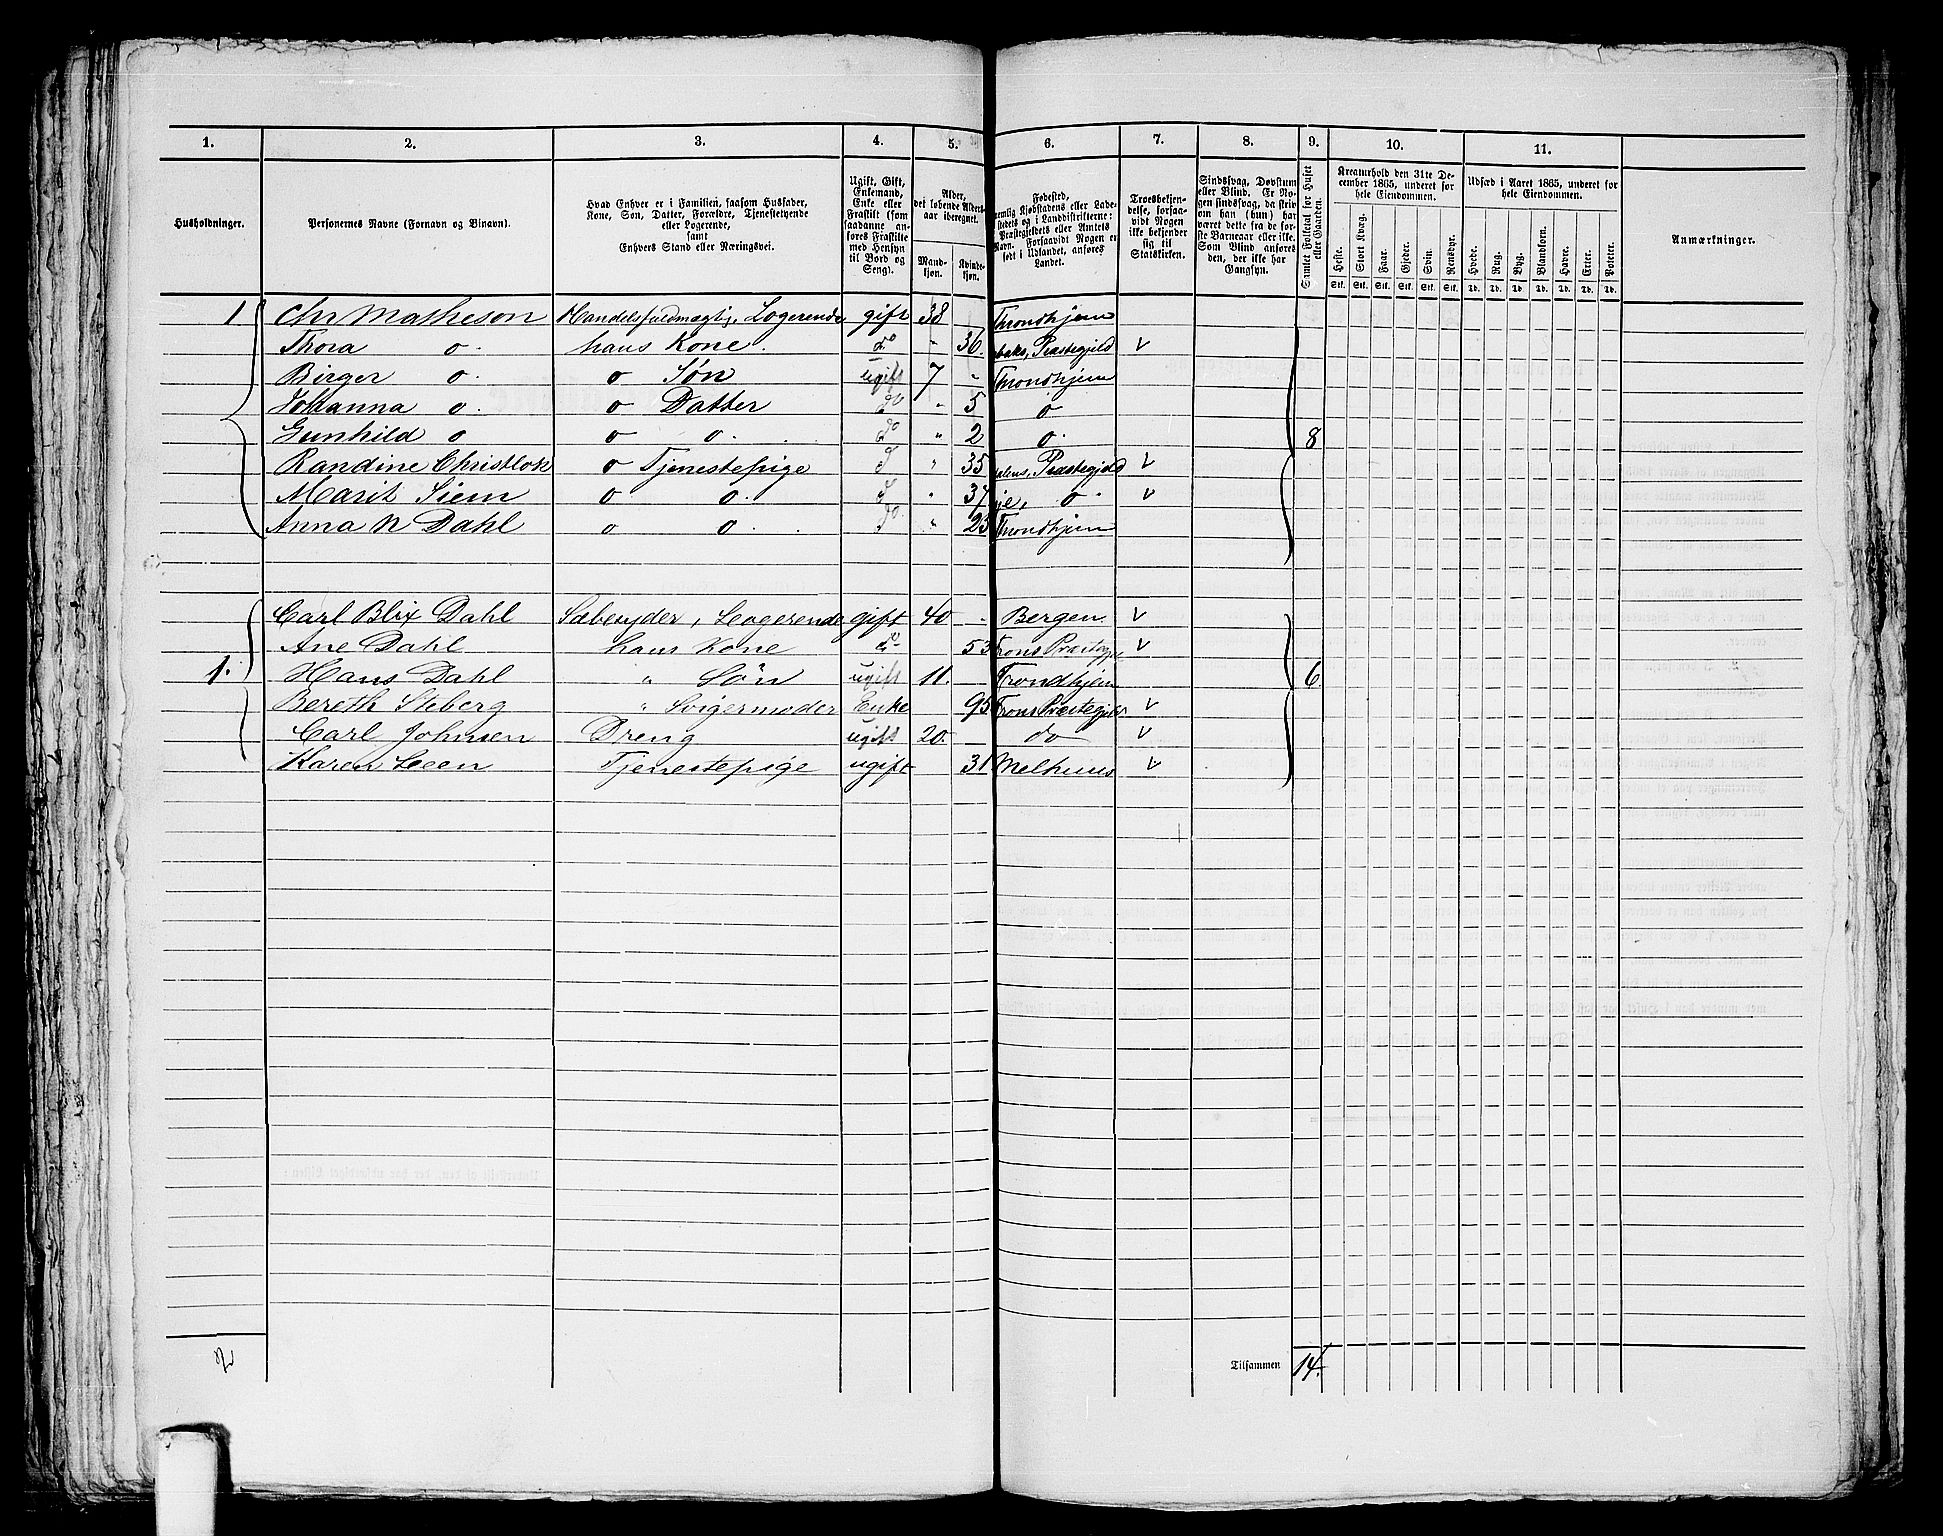 1. 2. 3. 4. 5. 6. 7. 8. 9. 10. 11.
Husholdninger.
Personernes Navne (Fornavn og Binavn).
Hvad Enhver er i Familien, saasom Husfader,
Kone, Søn, Datter, Forældre, Tjenestetyende
eller Logerende,
samt
Enhvers Stand eller Næringsvei.
Ugift, Gift,
Enkemand,
Enke eller
Fraskilt (som
saadanne an-
føres Fraskilte
med Hensyn
til Bord og
Seng).
Alder,
det løbende Alders-
aar iberegnet.
Mand-
kjøn.
Kvinde-
kjøn.
Fødested,
nemlig Kjøbstadens eller Lade-
stedets og i Landdistrikterne:
Præstegjeldets eller Amtets
Navn. Forsaavidt Nogen er
født i Udlandet, anføres
Landet.
Troesbekjen-
delse, forsaa-
vidt Nogen
ikke bekjender
sig til
Statskirken.
Sindssvag, Døvstum
eller Blind. Er No-
gen sindssvag, da skriv
om han (hun) har
været dette fra de før-
ste Barneaar eller ikke.
Som Blind anføres
den, der ikke har
Gangsyn.
Samlet Folketal for Huset
eller Gaarden.
Kreaturhold den 31te De-
cember 1865, underet for
hele Eiendommen.
Heste. Stort Kvæg. Faar. Gjeder. Svin. Rensdyr.
Stk. Stk. Stk. Stk. Stk. Stk.
Udsæd i Aaret 1865, underet for
hele Eiendommen.
Hvede. Rug. Byg. Blandkorn. Havre. Erter. Poteter.
Td. Td. Td. Td. Td. Td. Td.
Anmærkninger.
1 Chr Matheson Handelsfuldmægtig, Logerende gift 38 Throndhjem
Thora o. hans Kone. do " 36. Præstegjeld v
Birger o. o Søn ugift 7 " Throndhjem
Johanna o. o Datter do " 5 o
Gunhild o o o. do " 2 o. 8
Randine Christlok o Tjenestepige d " 35 Præstegjeld v
Marit Siem o o. d " 37 o. v
Anna N Dahl o o. do " 23 Throndhjem
Carl Blix Dahl Sæbesyder, Logerende gift 40 - Bergen v
Ane Dahl hans Kone do 53 v
1. Hans Dahl " Søn ugift 11. Trondhjem 6
Bereth Steberg " Svigermoder Enke 95 v
Carl Johnsen Dreng ugift 20. do v
Karen Leen Tjenestepige ugift 31 Melhuus v
2
Tilsammen 14.